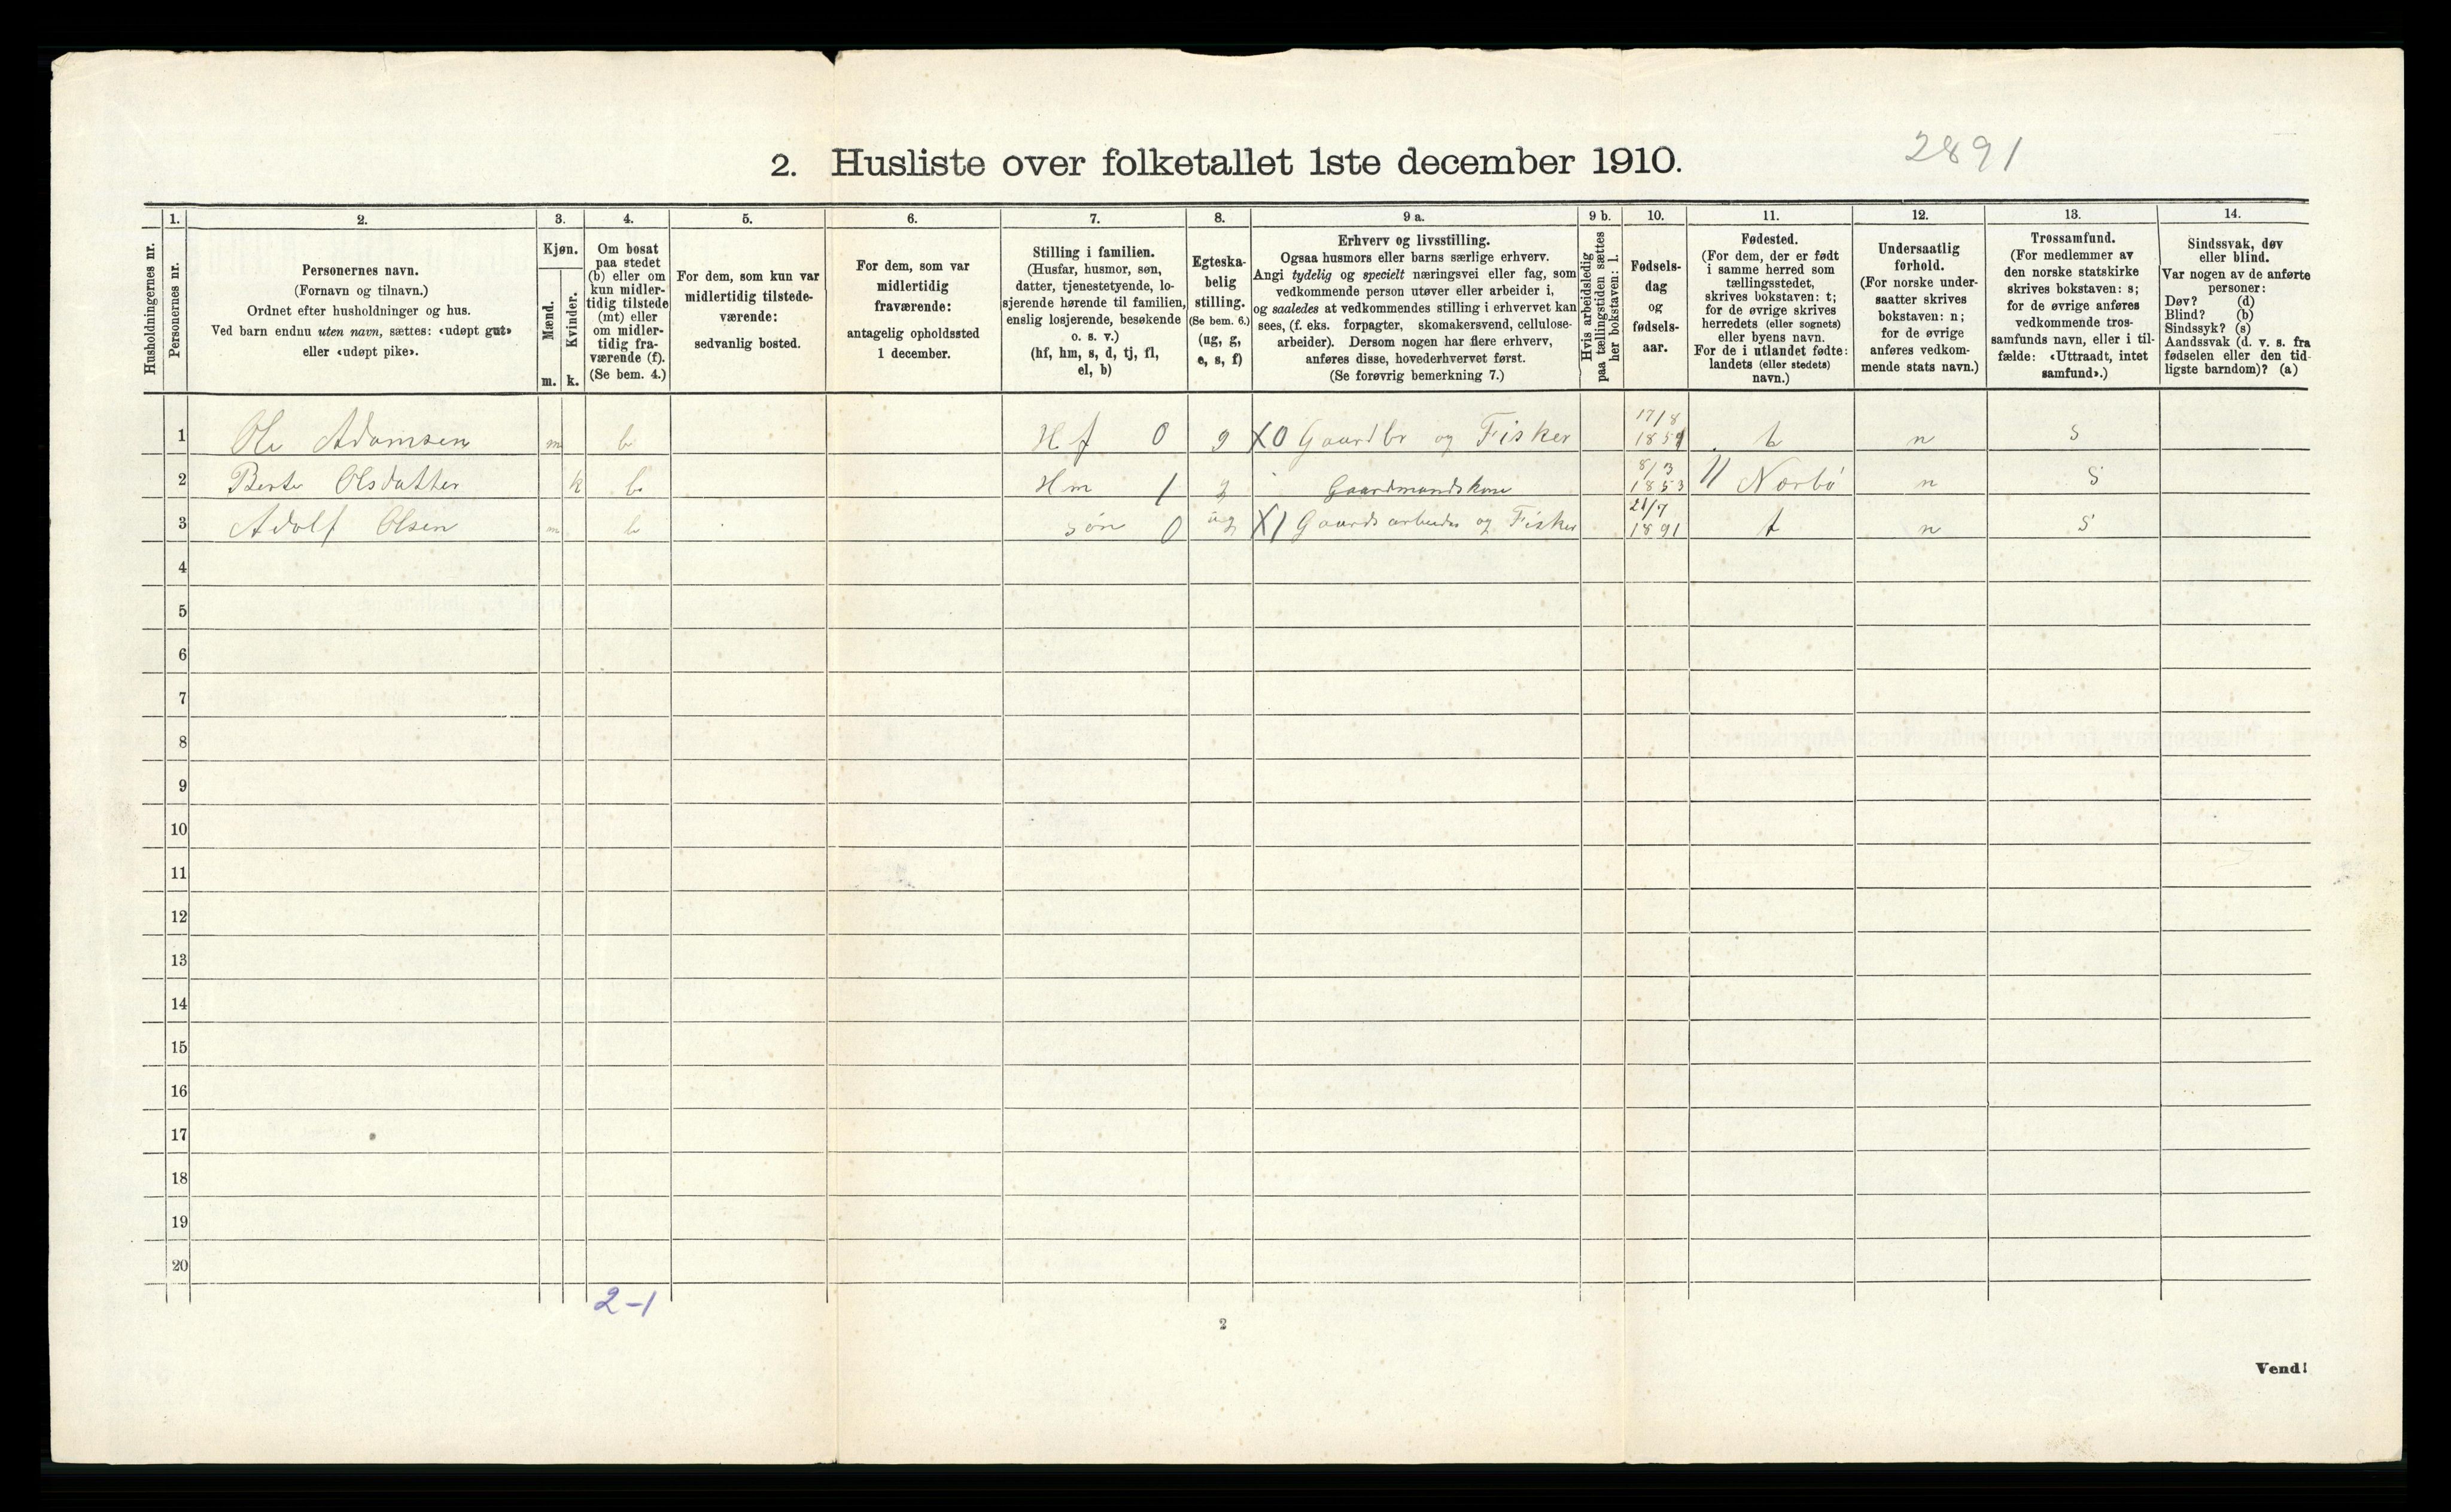 2891
2. Husliste over folketallet 1ste december 1910.
Husholdningernes nr.
1.
Personernes nr.
2.
Personernes navn.
(Fornavn og tilnavn.)
Ordnet efter husholdninger og hus.
Ved barn endnu uten navn, sættes: «udøpt gut»
eller «udøpt pike».
3.
Kjøn.
Mænd.
Kvinder.
m. k.
4.
Om bosat
paa stedet
(b) eller om
kun midler-
tidig tilstede
(mt) eller
om midler-
tidig fra-
værende (f).
(Se bem. 4.)
5.
For dem, som kun var
midlertidig tilstede-
værende:
sedvanlig bosted.
6.
For dem, som var
midlertidig
fraværende:
antagelig opholdssted
1 december.
7.
Stilling i familien.
(Husfar, husmor, søn,
datter, tjenestetyende, lo-
sjerende hørende til familien,
enslig losjerende, besøkende
o. s. v.)
(hf, hm, s, d, tj, fl,
el, b)
8.
Egteska-
belig
stilling.
(Se bem. 6.)
(ug, g,
e, s, f)
9 a.
Erhverv og livsstilling.
Ogsaa husmors eller barns særlige erhverv.
Angi tydelig og specielt næringsvei eller fag, som
vedkommende person utøver eller arbeider i,
og saaledes at vedkommendes stilling i erhvervet kan
sees, (f. eks. forpagter, skomakersvend, cellulose-
arbeider). Dersom nogen har flere erhverv,
anføres disse, hovederhvervet først.
(Se forøvrig bemerkning 7.)
9 b.
Hvis arbeidsledig
paa tællingstiden sættes
her bokstaven: l.
10.
Fødsels-
dag
og
fødsels-
aar.
11.
Fødested.
(For dem, der er født
i samme herred som
tællingsstedet,
skrives bokstaven: t;
for de øvrige skrives
herredets (eller sognets)
eller byens navn.
For de i utlandet fødte:
landets (eller stedets)
navn.)
12.
Undersaatlig
forhold.
(For norske under-
saatter skrives
bokstaven: n;
for de øvrige
anføres vedkom-
mende stats navn.)
13.
Trossamfund.
(For medlemmer av
den norske statskirke
skrives bokstaven: s;
for de øvrige anføres
vedkommende tros-
samfunds navn, eller i til-
fælde: «Uttraadt, intet
samfund».)
14.
Sindssvak, døv
eller blind.
Var nogen av de anførte
personer:
Døv? (d)
Blind? (b)
Sindssyk? (s)
Aandssvak (d. v. s. fra
fødselen eller den tid-
ligste barndom)? (a)
1 Ole Adamsen m b Hf 0 g X0 Gaardbr og Fisker 17/8 t n s
2 Berte Olsdatter k b Hm 1 g Gaardmandskone 8/3 1853 11 Nærbö n s
3 Adolf Olsen m b sön 0 ug X1 Gaardsarbeider og Fisker 21/7 1891 t n s
4
5
6
7
8
9
10
11
12
13
14
15
16
17
18
19
20
2-1
2
Vend!